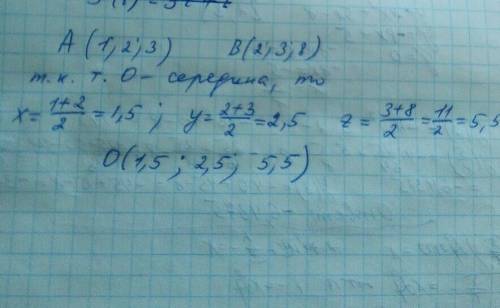 A (1; 2; 3) B(2; 3; 8)
т.к. т. О- середина, то
x = \frac{1+2}{2} = 1,5 ; y = \frac{2+3}{2} = 2,5 z = \frac{3+8}{2} = \frac{11}{2} = 5,5
O(1,5 ; 2,5; 5,5)